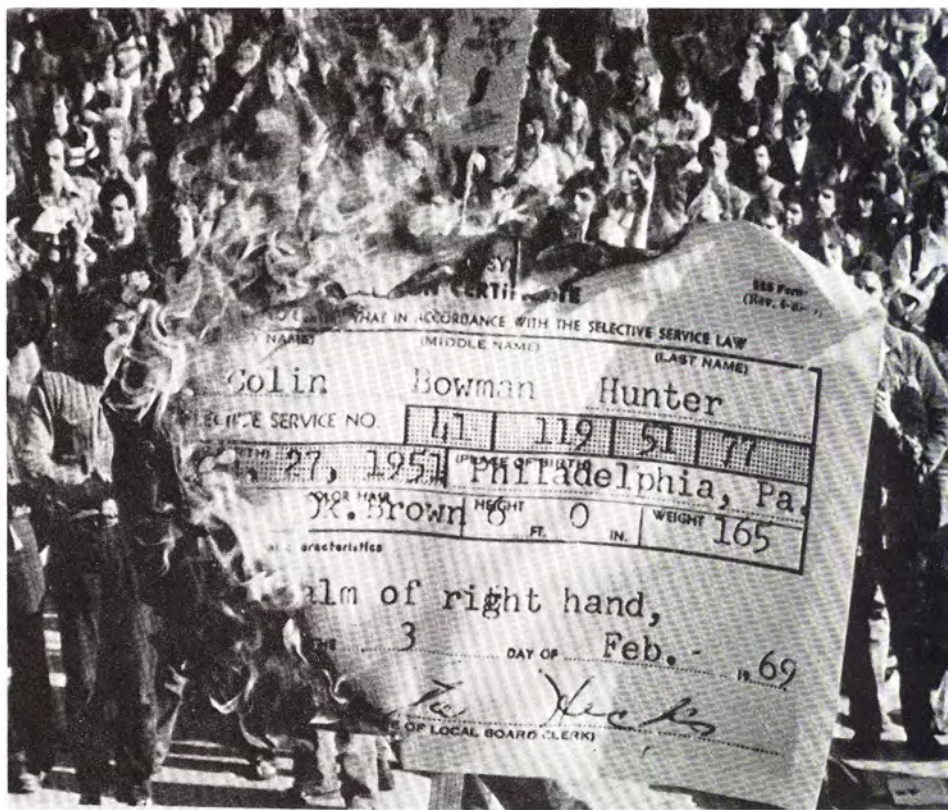 SSS Form
CERTI
TE
IN ACCORDANCE WITH THE SELECTIVE SERVICE LAW
NAME) (MIDDLE NAME) (LAST NAME)
Colin Bowman Hunter
SERVICE NO. 41 119 51 77
27, 1951 (PLACE OF BIRTH) Philadelphia, Pa.
COLOR HAIR Brown HEIGHT 6 FT. 0 IN. WEIGHT 165
aracteristics
alm of right hand,
THE 3 DAY OF Feb. - 19 69
Hecks
OF LOCAL BOARD CLERK)